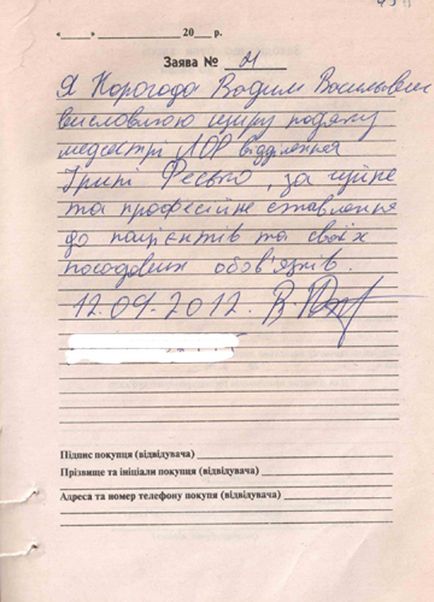 «____» ____________ 20___ р.
Заява № 21
Я Корогода Вадим Васильович
висловлюю щиру подяку
медсестрі ЛОР відділення
Ірині Фесько, за чуйне
та професійне ставлення
до пацієнтів та своїх
посадових обов'язків.
12.09.2012.
Підпис покупця (відвідувача)
Прізвище та ініціали покупця (відвідувача)
Адреса та номер телефону покупя (відвідувача)